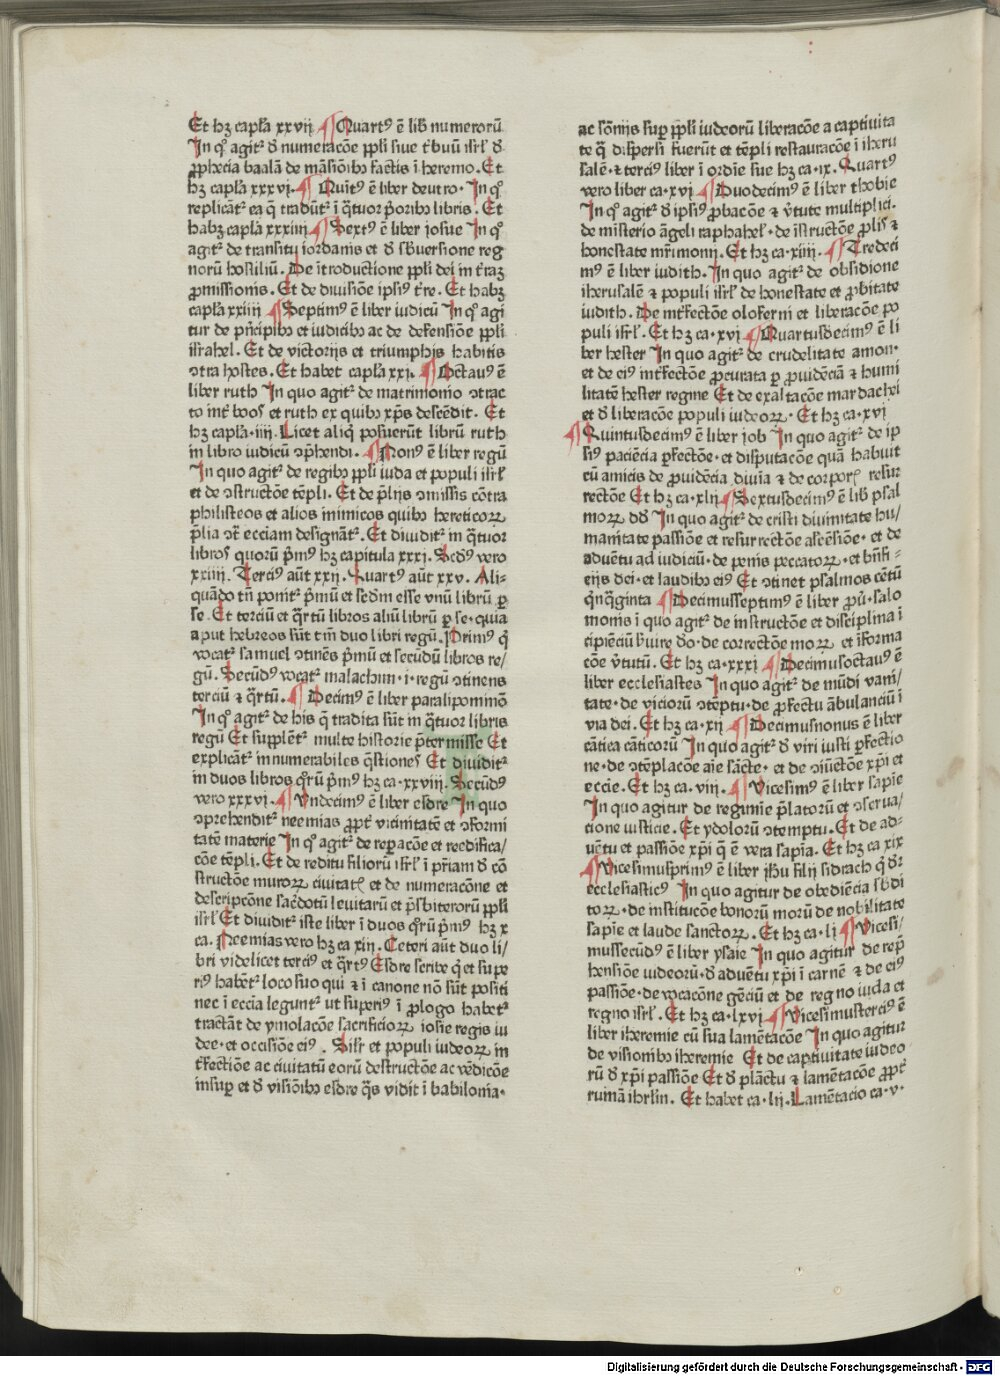 Et hꝫ capl̄a xxvij ¶ Quartꝰ ē lib̄ numerorū
In qͦ agit᷑ d̄ numeracōe ppl̄i siue t͛buū isrl̄ d̄
ꝓphecia baalā de māsiōibꝰ factis ī heremo. Et
hꝫ capl̄a xxxvi. ¶ Quītꝰ ē liber deutro. In qͦ
replicāt᷑ ea q̄ tradūt᷑ ī q̄tuor p͛oribꝰ libris. Et
habꝫ capl̄a xxxiiij ¶ Sextꝰ ē liber iosue In qͦ
agit᷑ de transitu iordanis et d̄ sb̄uersione reg
norū hostiliū. De ītroductione ppl̄i dei in t͛raꝫ
ꝓmissionis. Et de diuisiōe ipsiꝰ t͛re. Et habꝫ
capl̄a xxiiij ¶ Septimꝰ ē liber iudicū In qͦ agi
tur de pn̄cipibꝰ et iudicibꝰ ac de defensiōe ppl̄i
israhel. Et de victorijs et triumphis habitis
ɔtra hostes. Et habet capl̄a xxi. ¶ Octauꝰ ē
liber ruth In quo agit᷑ de matrimonio ɔtrac
to int͛ boos et ruth ex quibꝰ xp̄s descēdit. Et
hꝫ capl̄a .iiij. Licet aliq̄ posuerūt librū ruth
in libro iudicū ɔp̄hendi. ¶ Nonꝰ ē liber regū
In quo agit᷑ de regibꝰ ppl̄i iuda et populi isrl̄
et de ɔstructōe tēpli. Et de p̄lijs ɔmissis cōtra
philisteos et alios inimicos quibꝰ hereticoꝝ
p̄lia ɔt͛ ecciam designāt᷑. Et diuidit᷑ in q̄tuor
libros quorū p͛mꝰ hꝫ capitula xxxi. Scd̄s vero
xxiiij. Terciꝰ aūt xxij. Quartꝰ aūt xxv. Ali-
quādo tn̄ ponit᷑ p͛mū et sedm̄ esse vnū librū ꝑ
se. Et terciū et q̄rtū libros aliū librū ꝑ se. quia
aput hebreos sūt tm̄ duo libri regū. Primꝰ q͛
vocat᷑ samuel ɔtinēs p͛mū et secūdū libros re/
gū. Secūdꝰ vocat᷑ malachim .i. regū ɔtinens
terciū ⁊ q̄rtū. ¶ Decimꝰ ē liber paralipominō
In qͦ agit᷑ de his q̄ tradita sūt in q̄tuor libris
regū Et supplēt᷑ multe historie p̄termisse Et
explicāt᷑ innumerabiles q̄stiones Et diuidit᷑
in duos libros qͦrū p͛mꝰ hꝫ ca. xxviij. Secūdꝰ
vero xxxvi. ¶ Vndecimꝰ ē liber esdre In quo
ɔprehendit᷑ neemias ꝓpt͛ vicinitatē et ɔformi
tatē materie In qͦ agit᷑ de reꝑacōe et reedifica/
cōe tēpli. Et de reditu filiorū isrl̄ ī pr̄iam d̄ cō
structōe muroꝝ ciuitatꝭ et de numeracōne et
descripcōne sac͛dotū leuitarū et p̄sbiterorū ppl̄i
isrl̄ Et diuidit᷑ iste liber ī duos qͦrū p͛mꝰ hꝫ x
ca. Neemias vero hꝫ ca xiij. Ceteri aūt duo li/
bri videlicet terciꝰ et q̄rtꝰ Esdre scribe q͛ et supe
riꝰ habēt᷑ loco suo qui ⁊ ī canone nō sūt positi
nec ī eccīa legunt᷑ ut superiꝰ ī ꝓlogo habet᷑
tractāt de ymolacōe sacrificioꝝ iosie regis iu
dee. et occisiōe eiꝰ. Sil͛r et populi iudeoꝝ in
t͛fectiōe ac ciuitatū eorū destructōe ac vēdicōe
insuꝑ et d̄ visiōibꝰ esdre q̄s vidit ī babilonia.
ac sōnijs suꝑ ppl̄i iudeorū liberacōe a captiuita
te q̄ dispersi fuerūt et tēpli restauracōe ī iheru
salē. ⁊ terciꝰ liber ī ordīe sue hꝫ ca. ix. Quartꝰ
vero liber ca. xvi ¶ Duodecimꝰ ē liber thobie
In qͦ agit᷑ d̄ ipsiꝰ ꝓbacōe ⁊ v͛tute multiplici.
de misterio āgeli raphahel. de īstructōe ꝓlis ⁊
honestate mr̄imonij. Et hꝫ ca. xiiij. ¶ Tredeci
mꝰ ē liber iudith. In quo agit᷑ de obsidione
iherusalē ⁊ populi isrl̄ de honestate et ꝓbitate
iudith. De int͛fectōe oloferni et liberacōe po
puli isrl̄. Et hꝫ ca. xvi ¶ Quartusdecimꝰ ē li
ber hester In quo agit᷑ de crudelitate amon.
et de eiꝰ int͛fectōe ꝓcurata ꝑ ꝓuidēciā ⁊ humi
litatē hester regine Et de exaltacōe mardachei
et d̄ liberacōe populi iudeoꝝ. Et hꝫ ca. xvi
¶ Quintusdecimꝰ ē liber iob In quo agit᷑ de ip
siꝰ paciēcia ꝑfectōe. et disputacōe quā habuit
cū amicis de ꝓuidēcia diuīa ⁊ de corporꝭ resur
rectōe Et hꝫ ca. xlij ¶ Sextusdecimꝰ ē lib̄ psal
moꝝ dd̄ In quo agit᷑ de cristi diuinitate hu/
manitate passiōe et resurrectōe ascēsiōe. et de
aduētu ad iudiciū. de penis peccatoꝝ. et bn̄fi-
cijs dei. et laudibꝰ eiꝰ Et ɔtinet psalmos cētū
q͛nq̄ginta ¶ Decimusseptimꝰ ē liber ꝓu͛. salo
monis ī quo agit᷑ de instructōe et disciplina ī
cipiēciū b̄n viuere d̄o. de correctōe moꝝ et īforma
cōe v͛tutū. Et hꝫ ca. xxxi ¶ Decimusoctauꝰ ē
liber ecclesiastes In quo agit᷑ de mūdi vani/
tate. de viciorū ɔtēptu. de ꝓfectu ābulanciū ī
via dei. Et hꝫ ca. xij ¶ Decimusnonus ē liber
cātica cāticorū In quo agit᷑ d̄ viri iusti ꝑfectio
ne. de ɔtēplacōe aīe sācte. et de ɔiūctōe xp̄i et
eccīe. Et hꝫ ca. viij. ¶ Vicesimꝰ ē liber sapīe
In quo agitur de regimīe p̄latorū et ɔserua/
cione iusticie. Et ydolorū ɔtemptu. Et de ad-
uētu et passiōe xp̄i q̄ ē vera sapīa. Et hꝫ ca xix
¶ Vicesimusprimꝰ ē liber ihū filij sidrach q͛ dr̄
ecclesiasticꝰ In quo agitur de obediēcia sb̄di
toꝝ. de institucōe bonorū morū de nobilitate
sapīe et laude sanctoꝝ. Et hꝫ ca. lj ¶ Vicesi/
mussecūdꝰ ē liber ysaie In quo agitur de rep͛
hensiōe iudeorū. d̄ aduētu xp̄i ī carnē ⁊ de eiꝰ
passiōe. de vocacōne gēciū et de regno iuda et
regno isrl̄. Et hꝫ ca. lxvi ¶ Vicesimusterciꝰ ē
liber iheremie cū sua lamētacōe In quo agitur
de visionibꝰ iheremie Et de captiuitate iudeo
rū d̄ xp̄i passiōe Et d̄ plāctu ⁊ lamētacōe ꝓpt͛
ruinā ihrl̄m. Et habet ca. lij. Lamētacio ca. v.
Digitalisierung gefördert durch die Deutsche Forschungsgemeinschaft - DFG